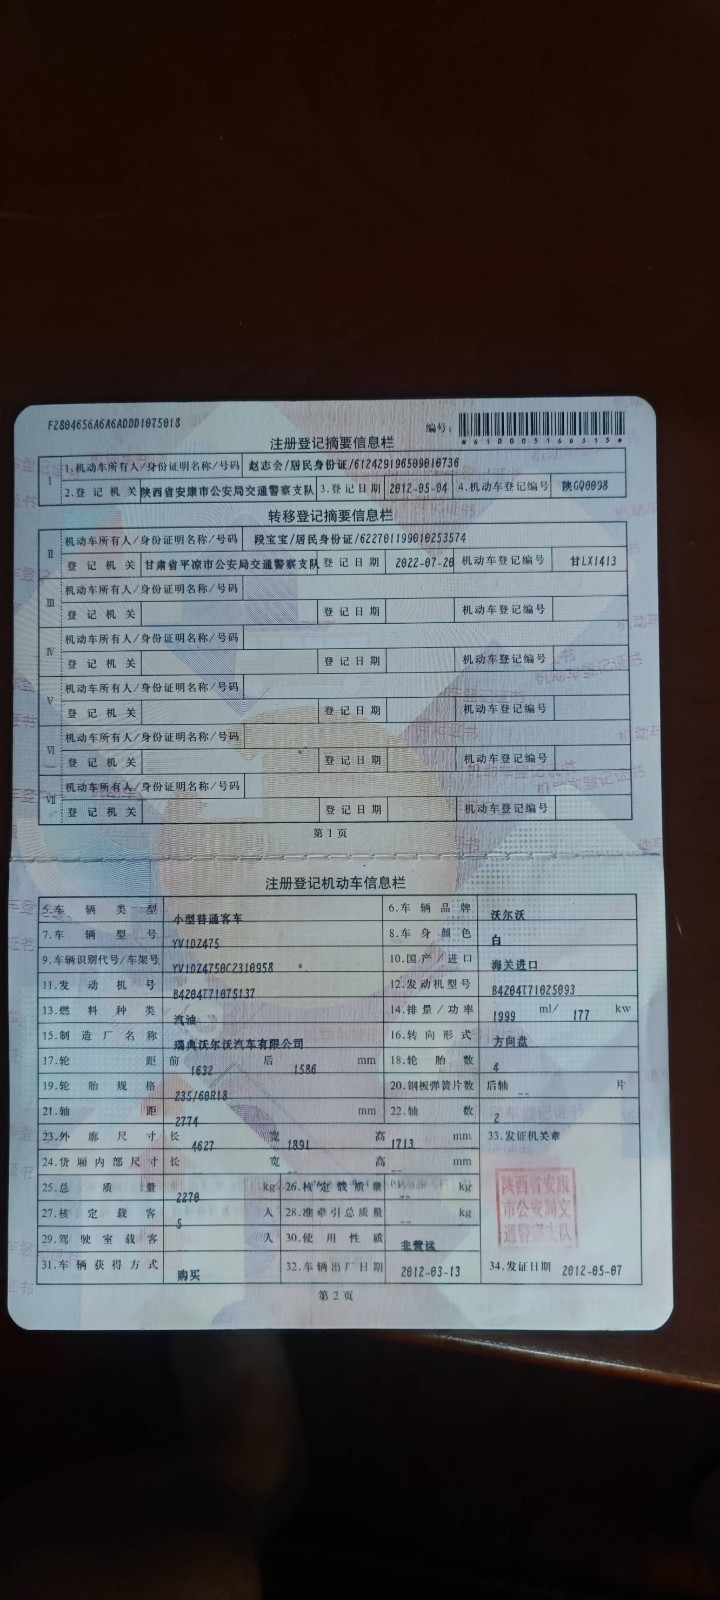 F2804656A6A6ADDD1075018
编号:
*610005166315*
注册登记摘要信息栏
I 1.机动车所有人/身份证明名称/号码 赵志会/居民身份证/612429196509010736
2.登记机关 陕西省安康市公安局交通警察支队 3.登记日期 2012-05-04 4.机动车登记编号 陕GQ0098
转移登记摘要信息栏
II 机动车所有人/身份证明名称/号码 段宝宝/居民身份证/622701199010253574
登记机关 甘肃省平凉市公安局交通警察支队 登记日期 2022-07-20 机动车登记编号 甘LX1413
III 机动车所有人/身份证明名称/号码
登记机关 登记日期 机动车登记编号
IV 机动车所有人/身份证明名称/号码
登记机关 登记日期 机动车登记编号
V 机动车所有人/身份证明名称/号码
登记机关 登记日期 机动车登记编号
VI 机动车所有人/身份证明名称/号码
登记机关 登记日期 机动车登记编号
VII 机动车所有人/身份证明名称/号码
登记机关 登记日期 机动车登记编号
第1页
注册登记机动车信息栏
5.车辆类型 小型普通客车 6.车辆品牌 沃尔沃
7.车辆型号 YV1DZ475 8.车身颜色 白
9.车辆识别代号/车架号 YV1DZ4750C2310958 10.国产/进口 海关进口
11.发动机号 B4204T71075137 12.发动机型号 B4204T71025093
13.燃料种类 汽油 14.排量/功率 1999 ml/ 177 kw
15.制造厂名称 瑞典沃尔沃汽车有限公司 16.转向形式 方向盘
17.轮距 前 1632 后 1586 mm 18.轮胎数 4
19.轮胎规格 235/60R18 20.钢板弹簧片数 后轴 -- 片
21.轴距 2774 mm 22.轴数 2
23.外廓尺寸 长 4627 宽 1891 高 1713 mm 33.发证机关章
24.货厢内部尺寸 长 宽 -- 高 -- mm
25.总质量 2270 kg 26.核定载质量 -- kg
27.核定载客 5 人 28.准牵引总质量 -- kg
29.驾驶室载客 人 30.使用性质 非营运
陕西省安康
市公安局交
通警察支队
31.车辆获得方式 购买 32.车辆出厂日期 2012-03-13 34.发证日期 2012-05-07
第2页